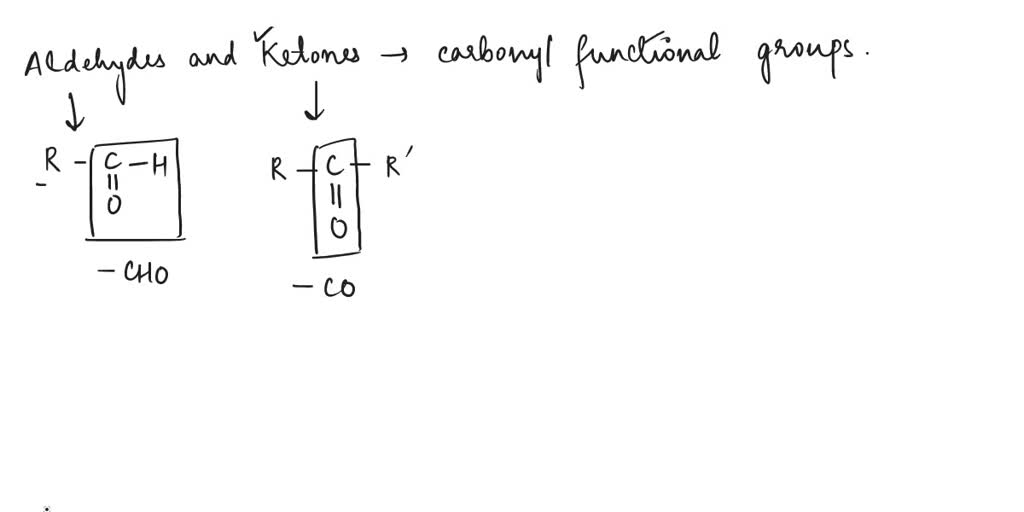 Aldehydes and Ketones → carbonyl functional groups.
↓ ↓
R - C - H R - C - R'
|| ||
O O
- CHO - CO